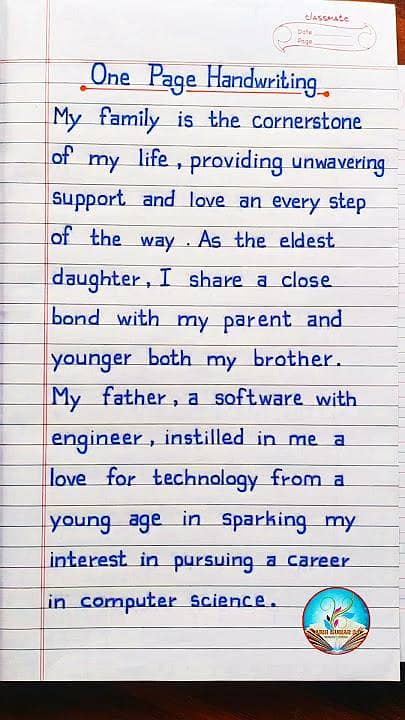 classmate
Date
Page
One Page Handwriting
My family is the cornerstone
of my life , providing unwavering
support and love an every step
of the way . As the eldest
daughter, I share a close
bond with my parent and
younger both my brother.
My father , a software with
engineer , instilled in me a
love for technology from a
young age in sparking my
interest in pursuing a career
in computer science .